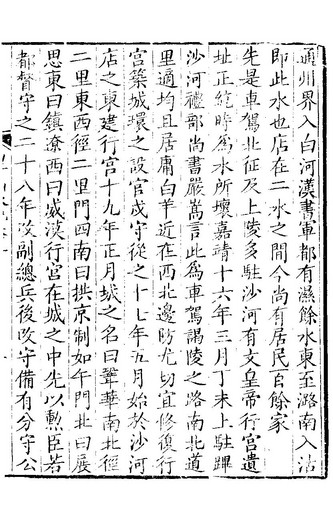 通州界入白河漢書軍都有濕餘水東至潞南入沽
即此水也店在二水之間今尚有居民百餘家
先是車駕北征及上陵多駐沙河有文皇帝行宮遺
址正統時為水所壞嘉靖十六年三月丁未上駐蹕
沙河禮部尚書嚴嵩言此為車駕謁陵之路南北道
里適均且居庸白羊近在西北邊防尤切宜修復行
宮築城環之設官戍守從之十七年五月始於沙河
店之東建行宮十九年正月城之名曰鞏華南北徑
二里東西徑二里門四南曰拱京制如午門北曰展
思東曰鎮遼西曰威漠行宮在城之中先以勲臣若
都督守之二十八年改副總兵後改守備有分守公